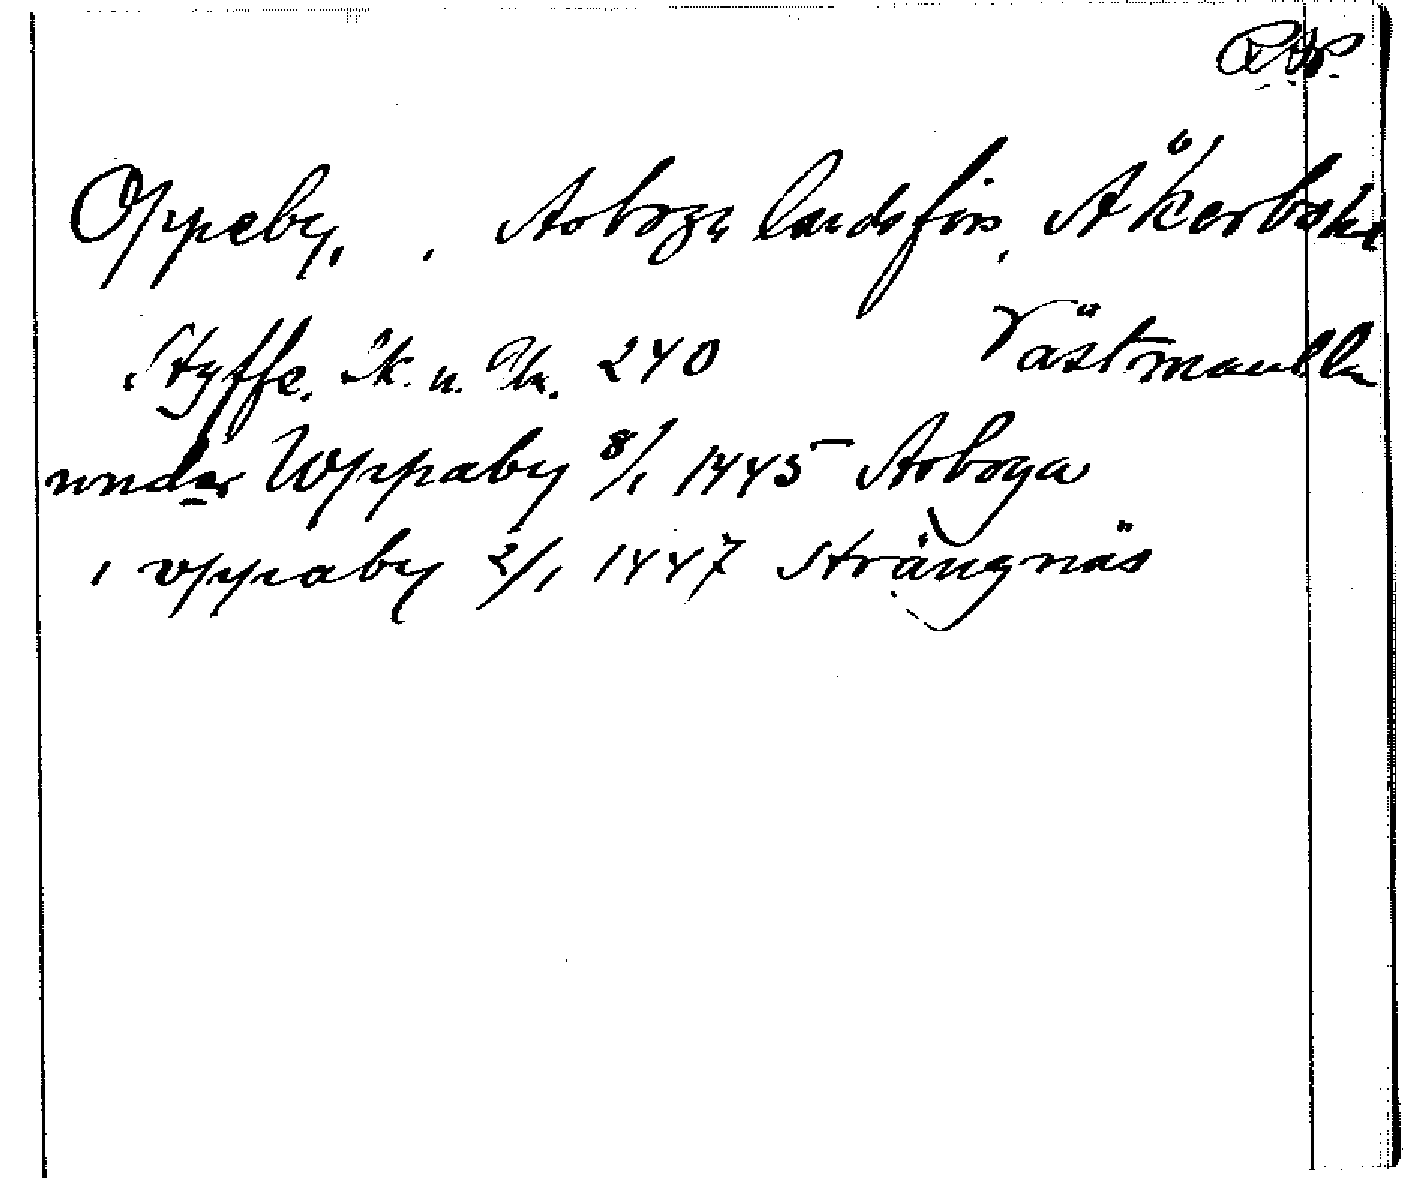 RAP.
Oppeby, , Arboga landsförs, Åkerbo hd
Styffe. Sk. u. Un. 240 Västmanl ln
wnder Wppaby 8/1 1445 Arboga
i vppaby 2/1 1447 Strängnäs